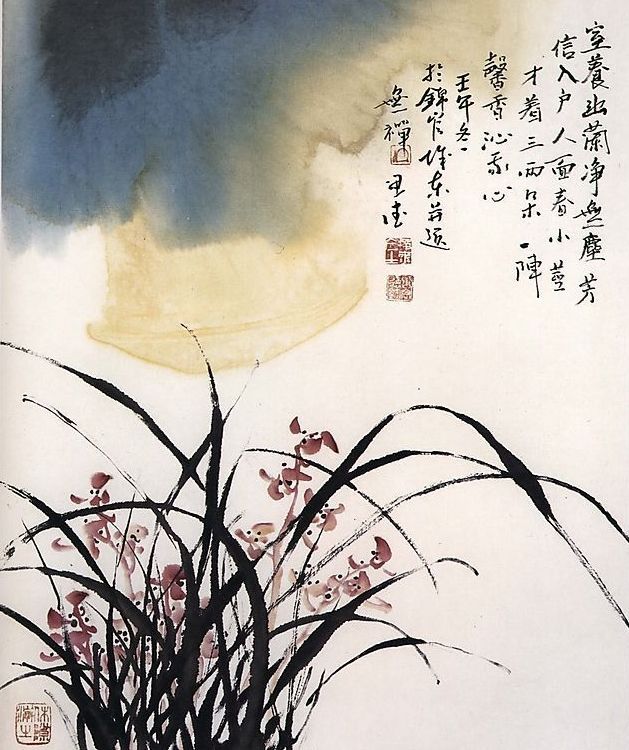 室養幽蘭净無塵芳
信入户人面春小莖
才着三兩朵一陣
馨香沁我心
壬午冬
於錦官城東
無禪